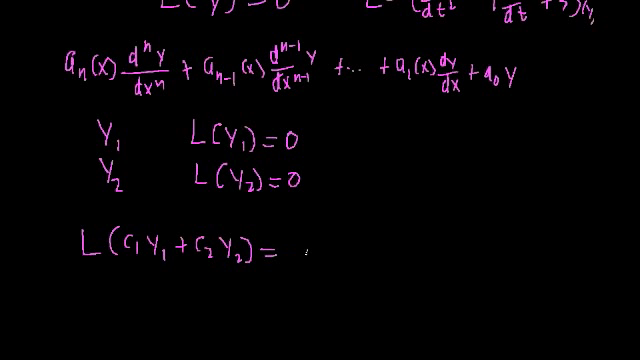 L(y)=0 L=
aₙ(x) dⁿy/dxⁿ + aₙ₋₁(x) dⁿ⁻¹y/dxⁿ⁻¹ + ... + a₁(x) dy/dx + a₀ y
Y₁ L(Y₁)=0
Y₂ L(Y₂)=0
L(C₁Y₁+C₂Y₂)=